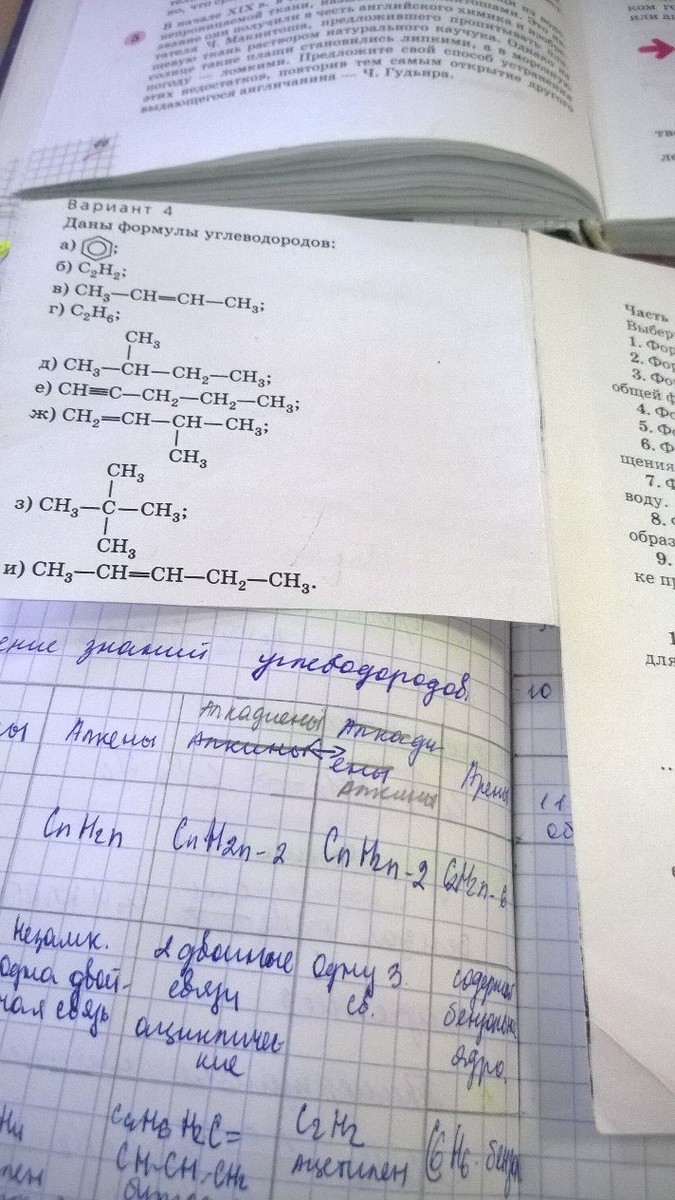 В начале XIX в.
непроницаемой ткани,
звание они получили в честь английского химика и
тателя Ч. Макинтоша, предложившего пропитывать
шевую ткань раствором натурального каучука. Однако на
солнце такие плащи становились липкими, а в морозную
погоду — ломкими. Предложите свой способ устранения
этих недостатков, повторив тем самым открытие другого
выдающегося англичанина — Ч. Гудьира.
5
ком
или
Вариант 4
Даны формулы углеводородов:
а) ;
б) C₂H₂;
в) CH₃—CH=CH—CH₃;
г) C₂H₆;
CH₃
д) CH₃—CH—CH₂—CH₃;
е) CH≡C—CH₂—CH₂—CH₃;
ж) CH₂=CH—CH—CH₃;
CH₃
CH₃
з) CH₃—C—CH₃;
CH₃
и) CH₃—CH=CH—CH₂—CH₃.
Часть
Выбер
1. Фор
2. Фор
3. Фо
общей ф
4. Фо
5. Фо
6. Ф
щения
7. Ф
воду.
8.
образ
9.
ке пр
1
для
ение знаний углеводородов.
ны
Алкены
Алкадиены
Алкины
Алкади
ены
Алкины
Арены
CnH2n
CnH2n-2
CnH2n-2
незамк.
одна двой-
ная связь
2 двойные
связи
ацикличес
кие
Одну 3.
св.
содержат
бензольн.
ядро.
C₄H₆ H₂C=
CH-CH=CH₂
C₂H₂
ацетилен
C₆H₆
10
11
об